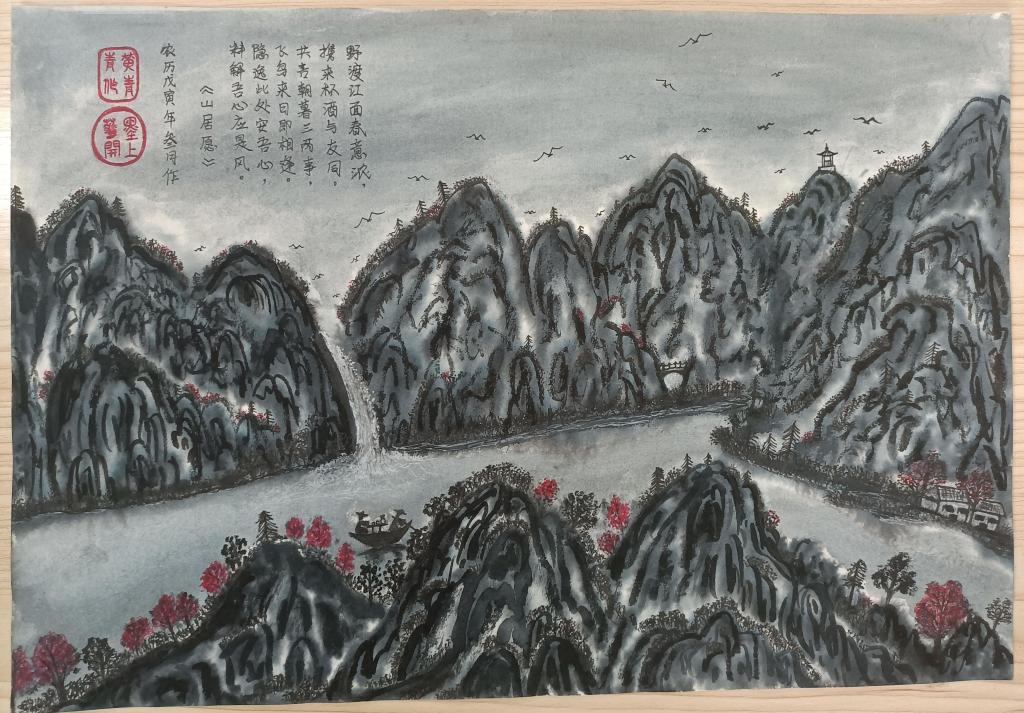 野渡江面春意浓，
携来杯酒与友同。
共话朝暮三两事，
飞鸟来日即相逢。
隐逸此处安吾心，
料解吾心应是风。
《山居愿》
农历戊寅年叁月作
黄青
青作
墨上
花開